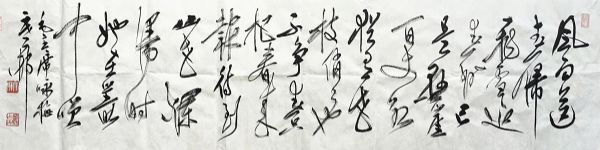 风雨送
春归
飞雪迎
春到已
是悬崖
百丈冰
犹有花
枝俏俏也
不争春只
把春来
报待到
山花烂
漫时
她在丛
中笑
毛主席咏梅